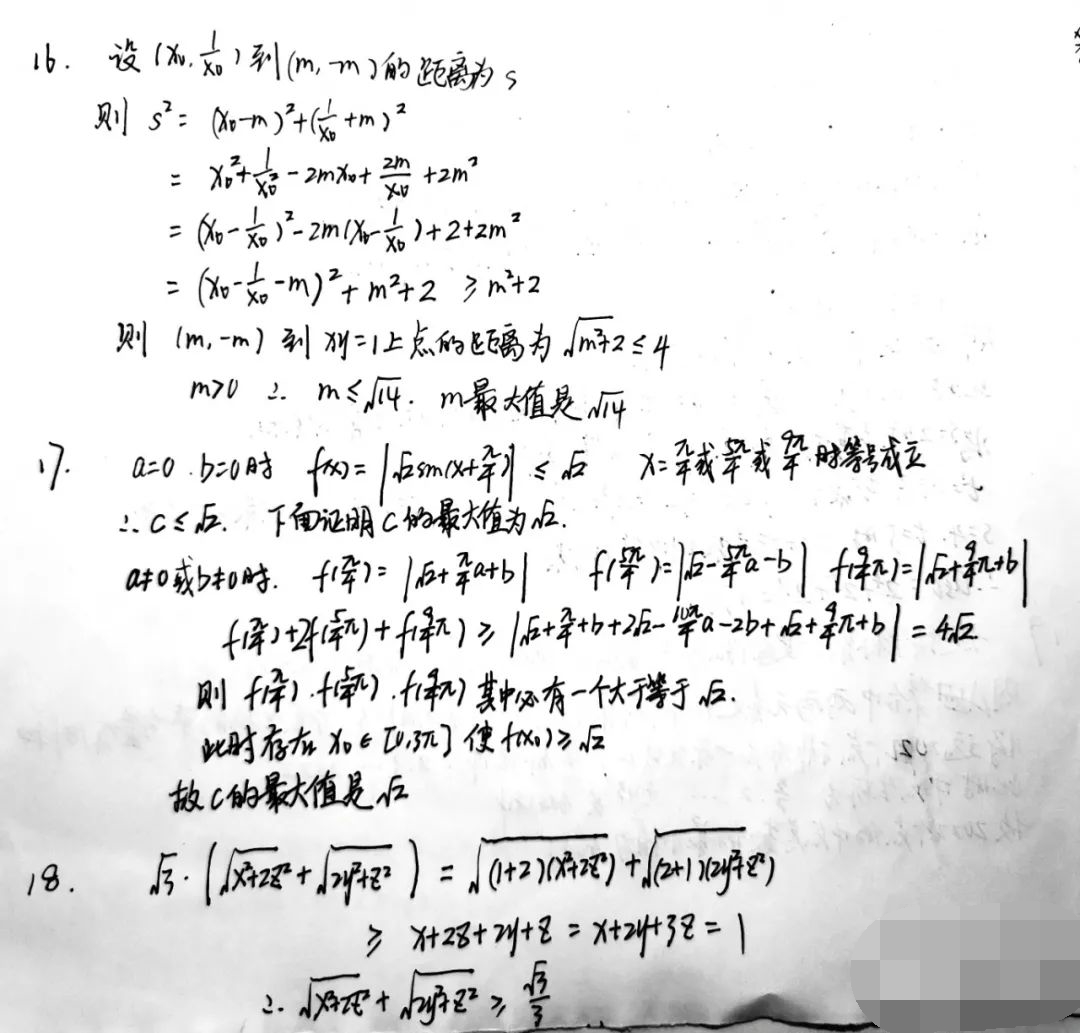 16. 设(x₀, 1/x₀)到(m, -m)的距离为s
则 s² = (x₀-m)²+(1/x₀+m)²
= x₀²+1/x₀²-2mx₀+2m/x₀+2m²
= (x₀-1/x₀)²-2m(x₀-1/x₀)+2+2m²
= (x₀-1/x₀-m)²+m²+2 ≥m²+2
则 (m, -m) 到 xy=1上点的距离为√(m²+2)≤4
m>0 ∴ m≤√14. m最大值是√14
17. a=0.b=0时 f(x)=|√2sin(x+π/4)|≤√2 x=π/4或5π/4或9π/4时等号成立
∴c≤√2. 下面证明c的最大值为√2.
a≠0或b≠0时. f(π/4)=|√2+π/4a+b| f(5π/4)=|√2-5π/4a-b| f(9/4π)=|√2+9/4π+b|
f(π/4)+2f(5/4π)+f(9/4π)≥|√2+π/4+b+2√2-10π/4a-2b+√2+9/4π+b|=4√2
则 f(π/4).f(5/4π).f(9/4π)其中必有一个大于等于√2.
此时存在 x₀∈[0,3π]使f(x₀)≥√2
故c的最大值是√2
18. √3·(√(x²+2z²)+√(2y²+z²))=√((1+2)(x²+2z²))+√((2+1)(2y²+z²))
≥ x+2z+2y+z=x+2y+3z=1
∴√(x²+2z²)+√(2y²+z²)≥√3/3